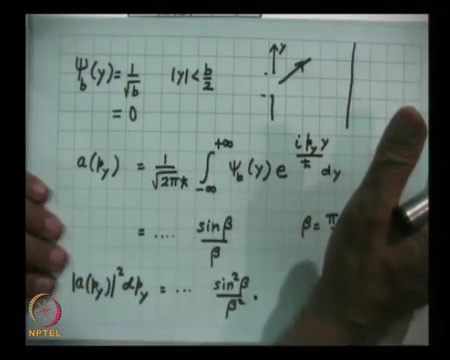 Ψ_b(y) = 1/√b |y| < b/2
= 0
y
a(p_y) = 1/√(2πħ) ∫_{-∞}^{+∞} Ψ_b(y) e^{i p_y y/ħ} dy
= .... sin β/β β = π
|a(p_y)|² dp_y = ... sin²β/β² .
NPTEL